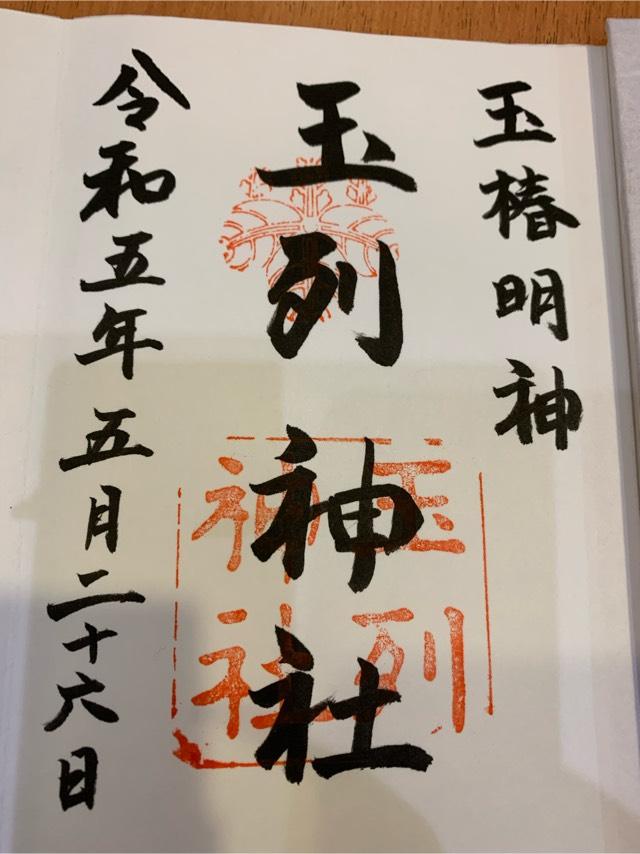 玉椿明神
玉列神社
玉列
神社
令和五年五月二十六日